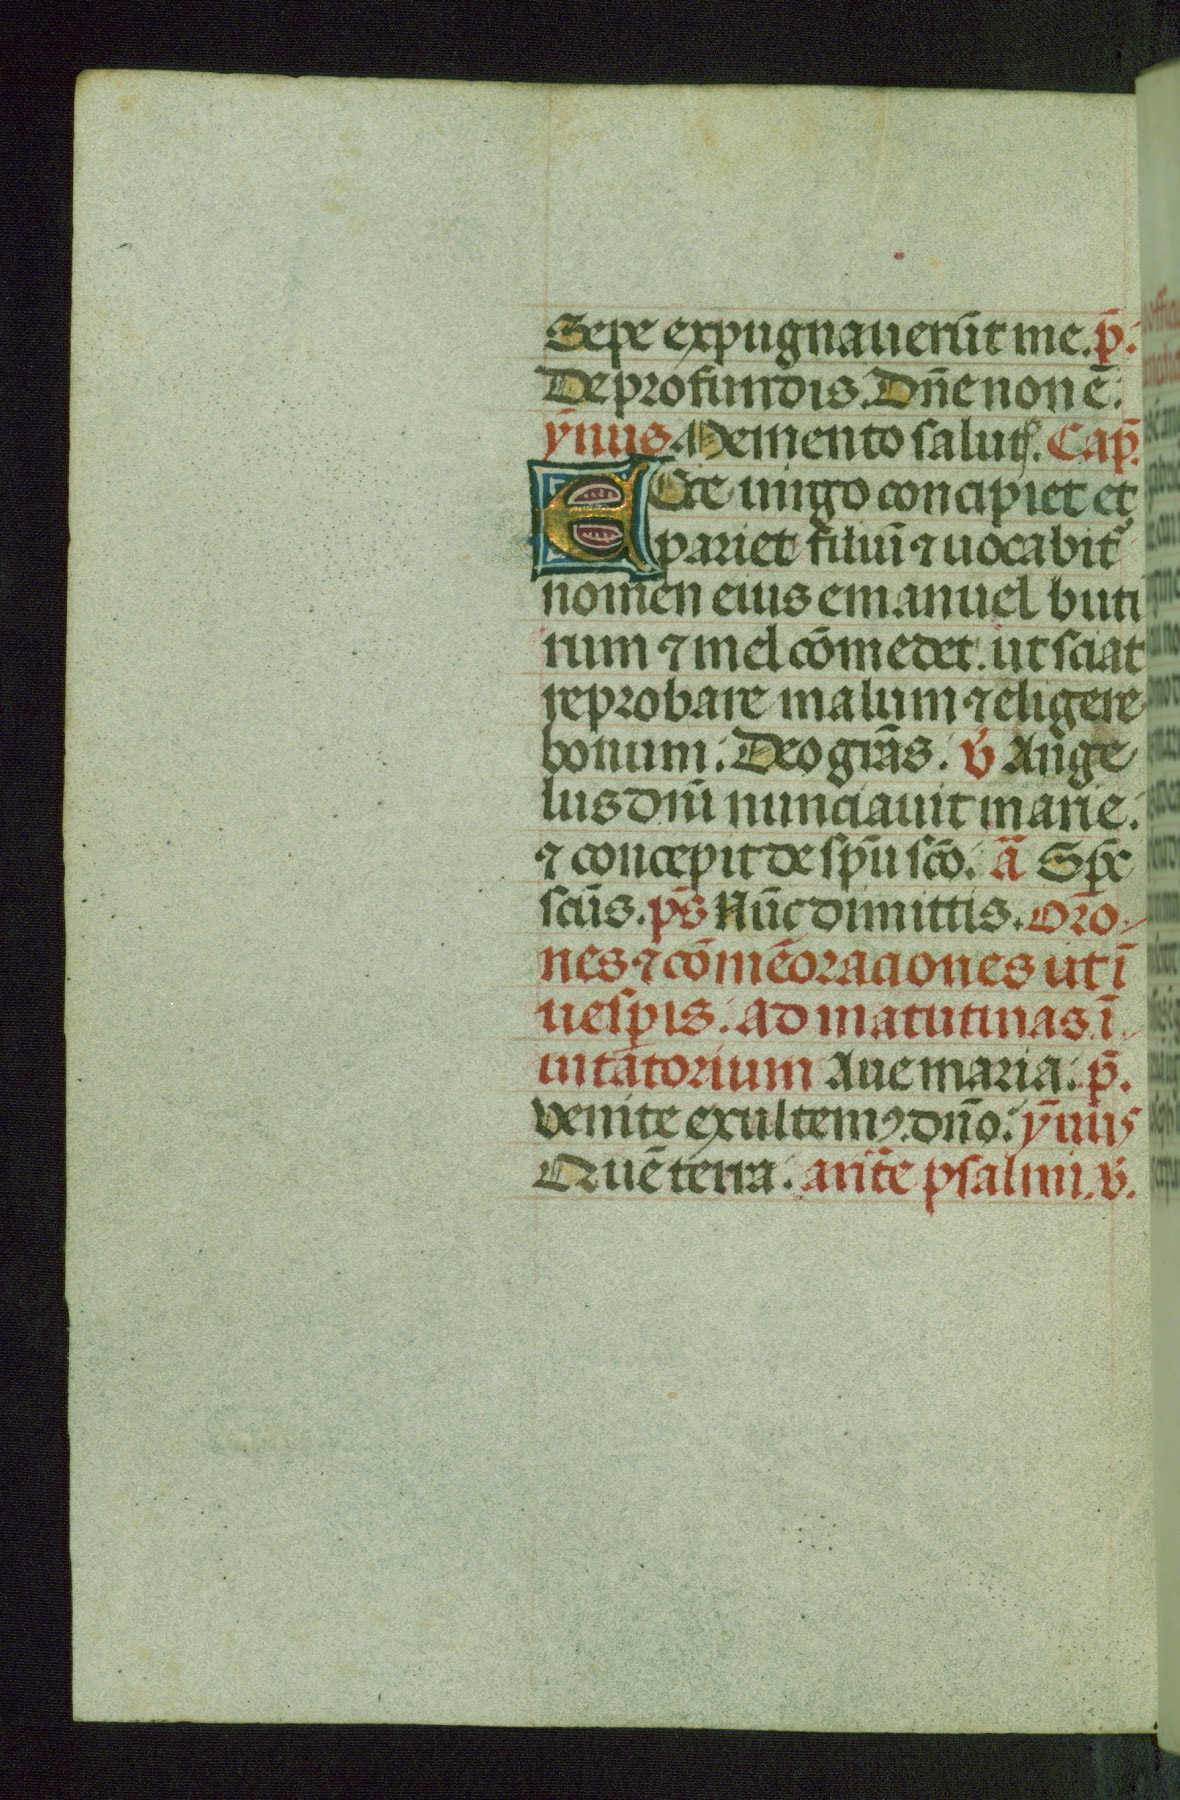 Sepe expugnauerūt me. p̄.
De profundis. Dn̄e non ē.
ȳnus Memento salut. Cap̄.
ECce uirgo concipiet et
pariet filiū ⁊ uocabit᷑
nomen eius emanuel buti
rum ⁊ mel cōmedet. ut sciat
reprobare malum ⁊ eligere
bonum. Deo grās. v̄ Ange
lus dn̄i nunciauit marie.
⁊ concepit de sp̄u scō. ā Sp̄c
scūs. p̄s Nūc dimittis. Or̄o
nes ⁊ cōmēoraciones ut ī
uesp̄is. ad matutinas ī
uitatorium Aue maria. p̄.
Venite exultemꝰ dn̄o. ȳnus
Quē terra. an̄te psalmi. v̄.